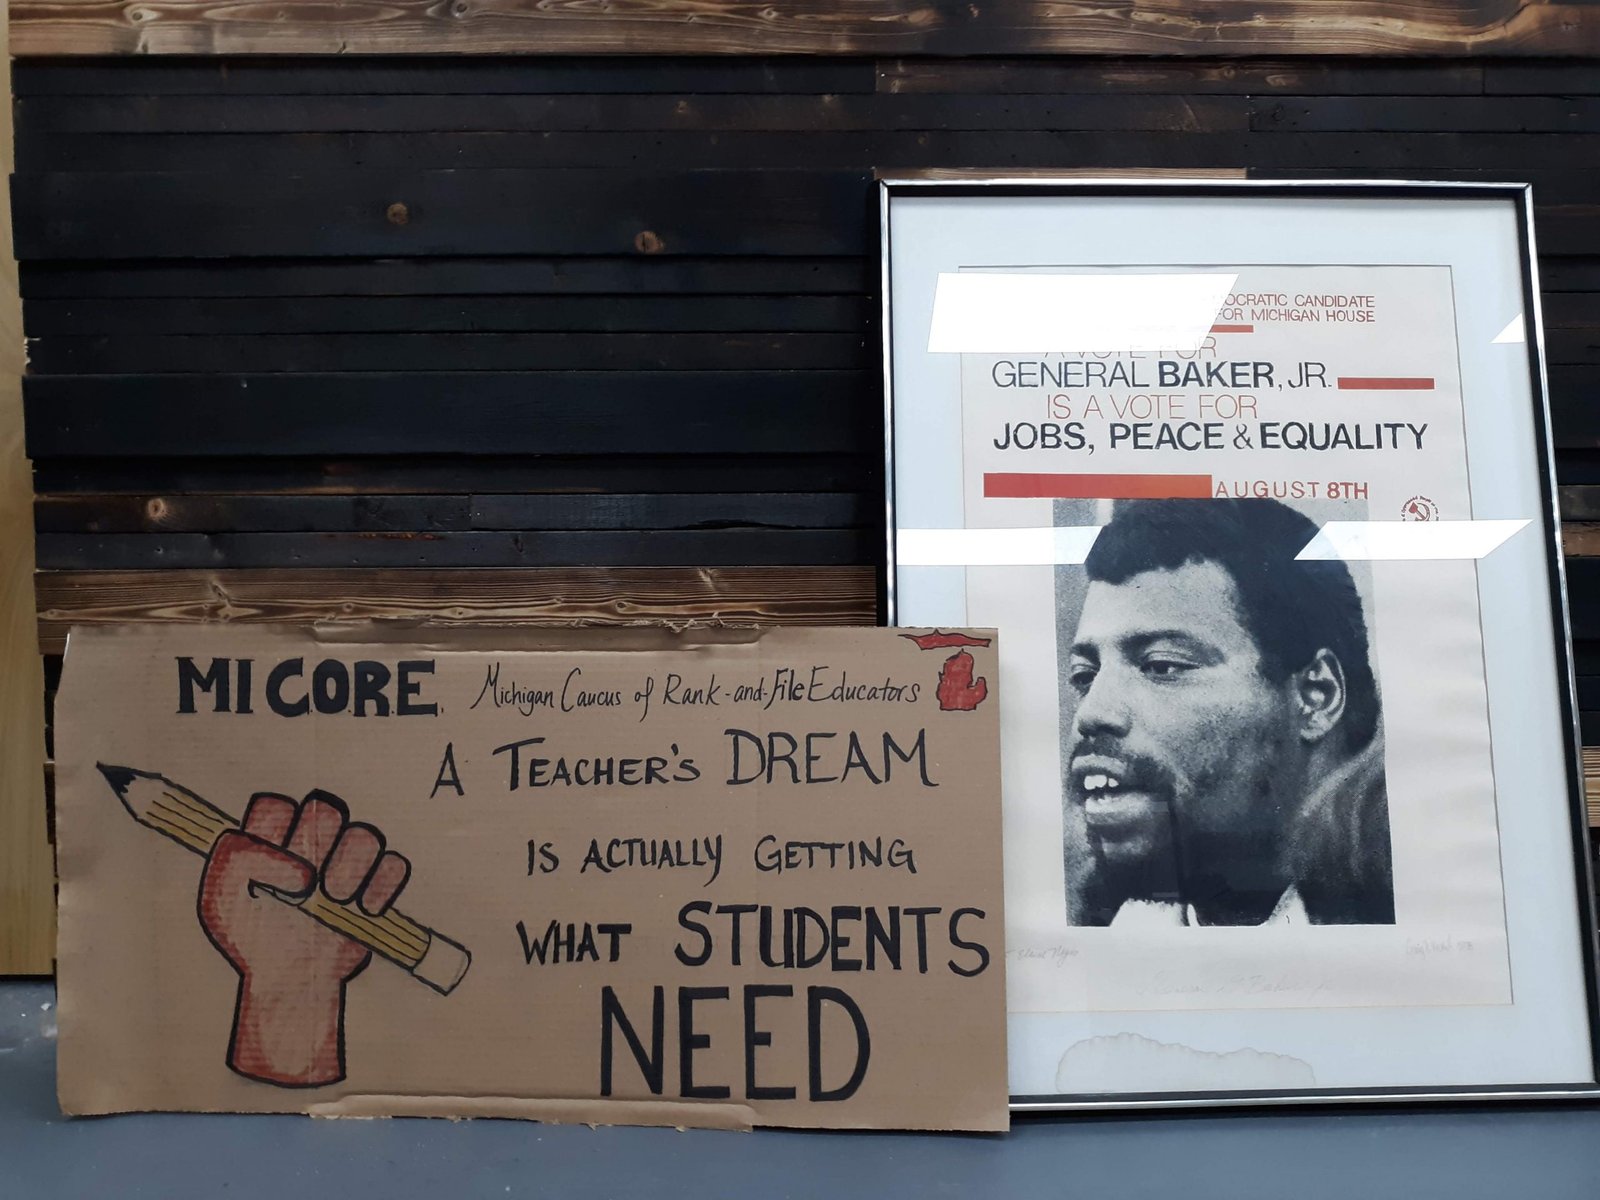 MI C.O.R.E. Michigan Caucus of Rank-and-File Educators
A TEACHER'S DREAM
IS ACTUALLY GETTING
WHAT STUDENTS
NEED
OCRATIC CANDIDATE
FOR MICHIGAN HOUSE
A VOTE FOR
GENERAL BAKER, JR.
IS A VOTE FOR
JOBS, PEACE & EQUALITY
AUGUST 8TH